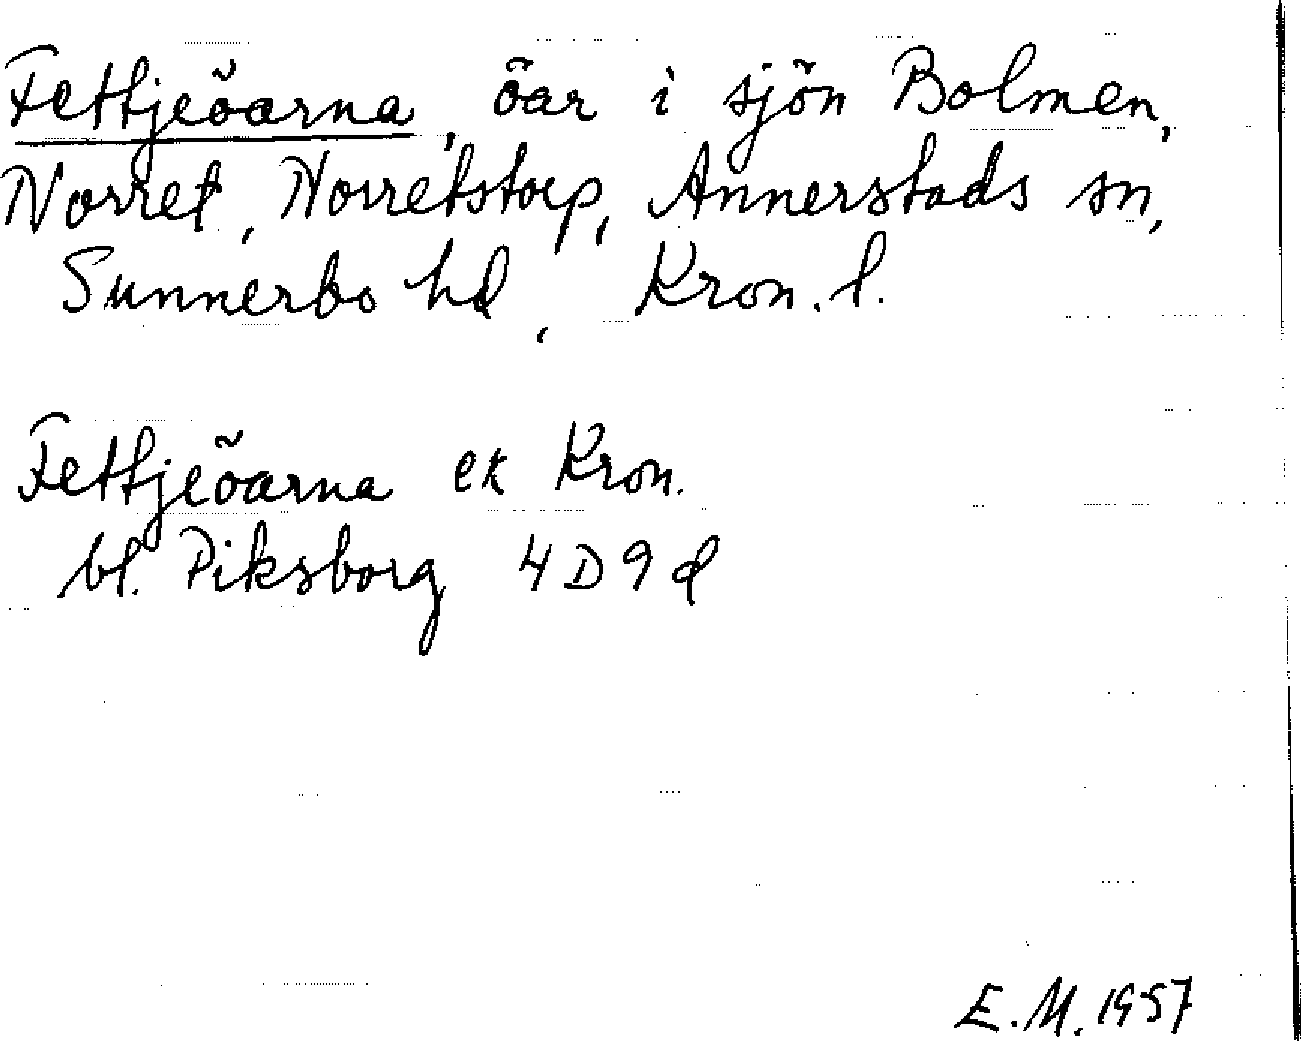 Fettjeöarna, öar i sjön Bolmen,
Norret, Norretstorp, Annerstads sn,
Sunnerbo hd, Kron. l.
Fettjeöarna ek Kron.
bl. Piksborg 4D9d
E.M. 1957